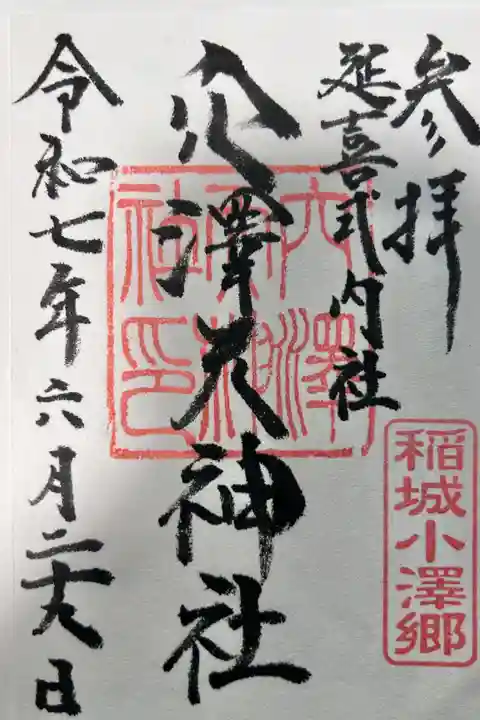 参拝
延喜式内社
穴澤天神社
令和七年六月二十八日
穴澤
天神
社印
稲城小澤郷